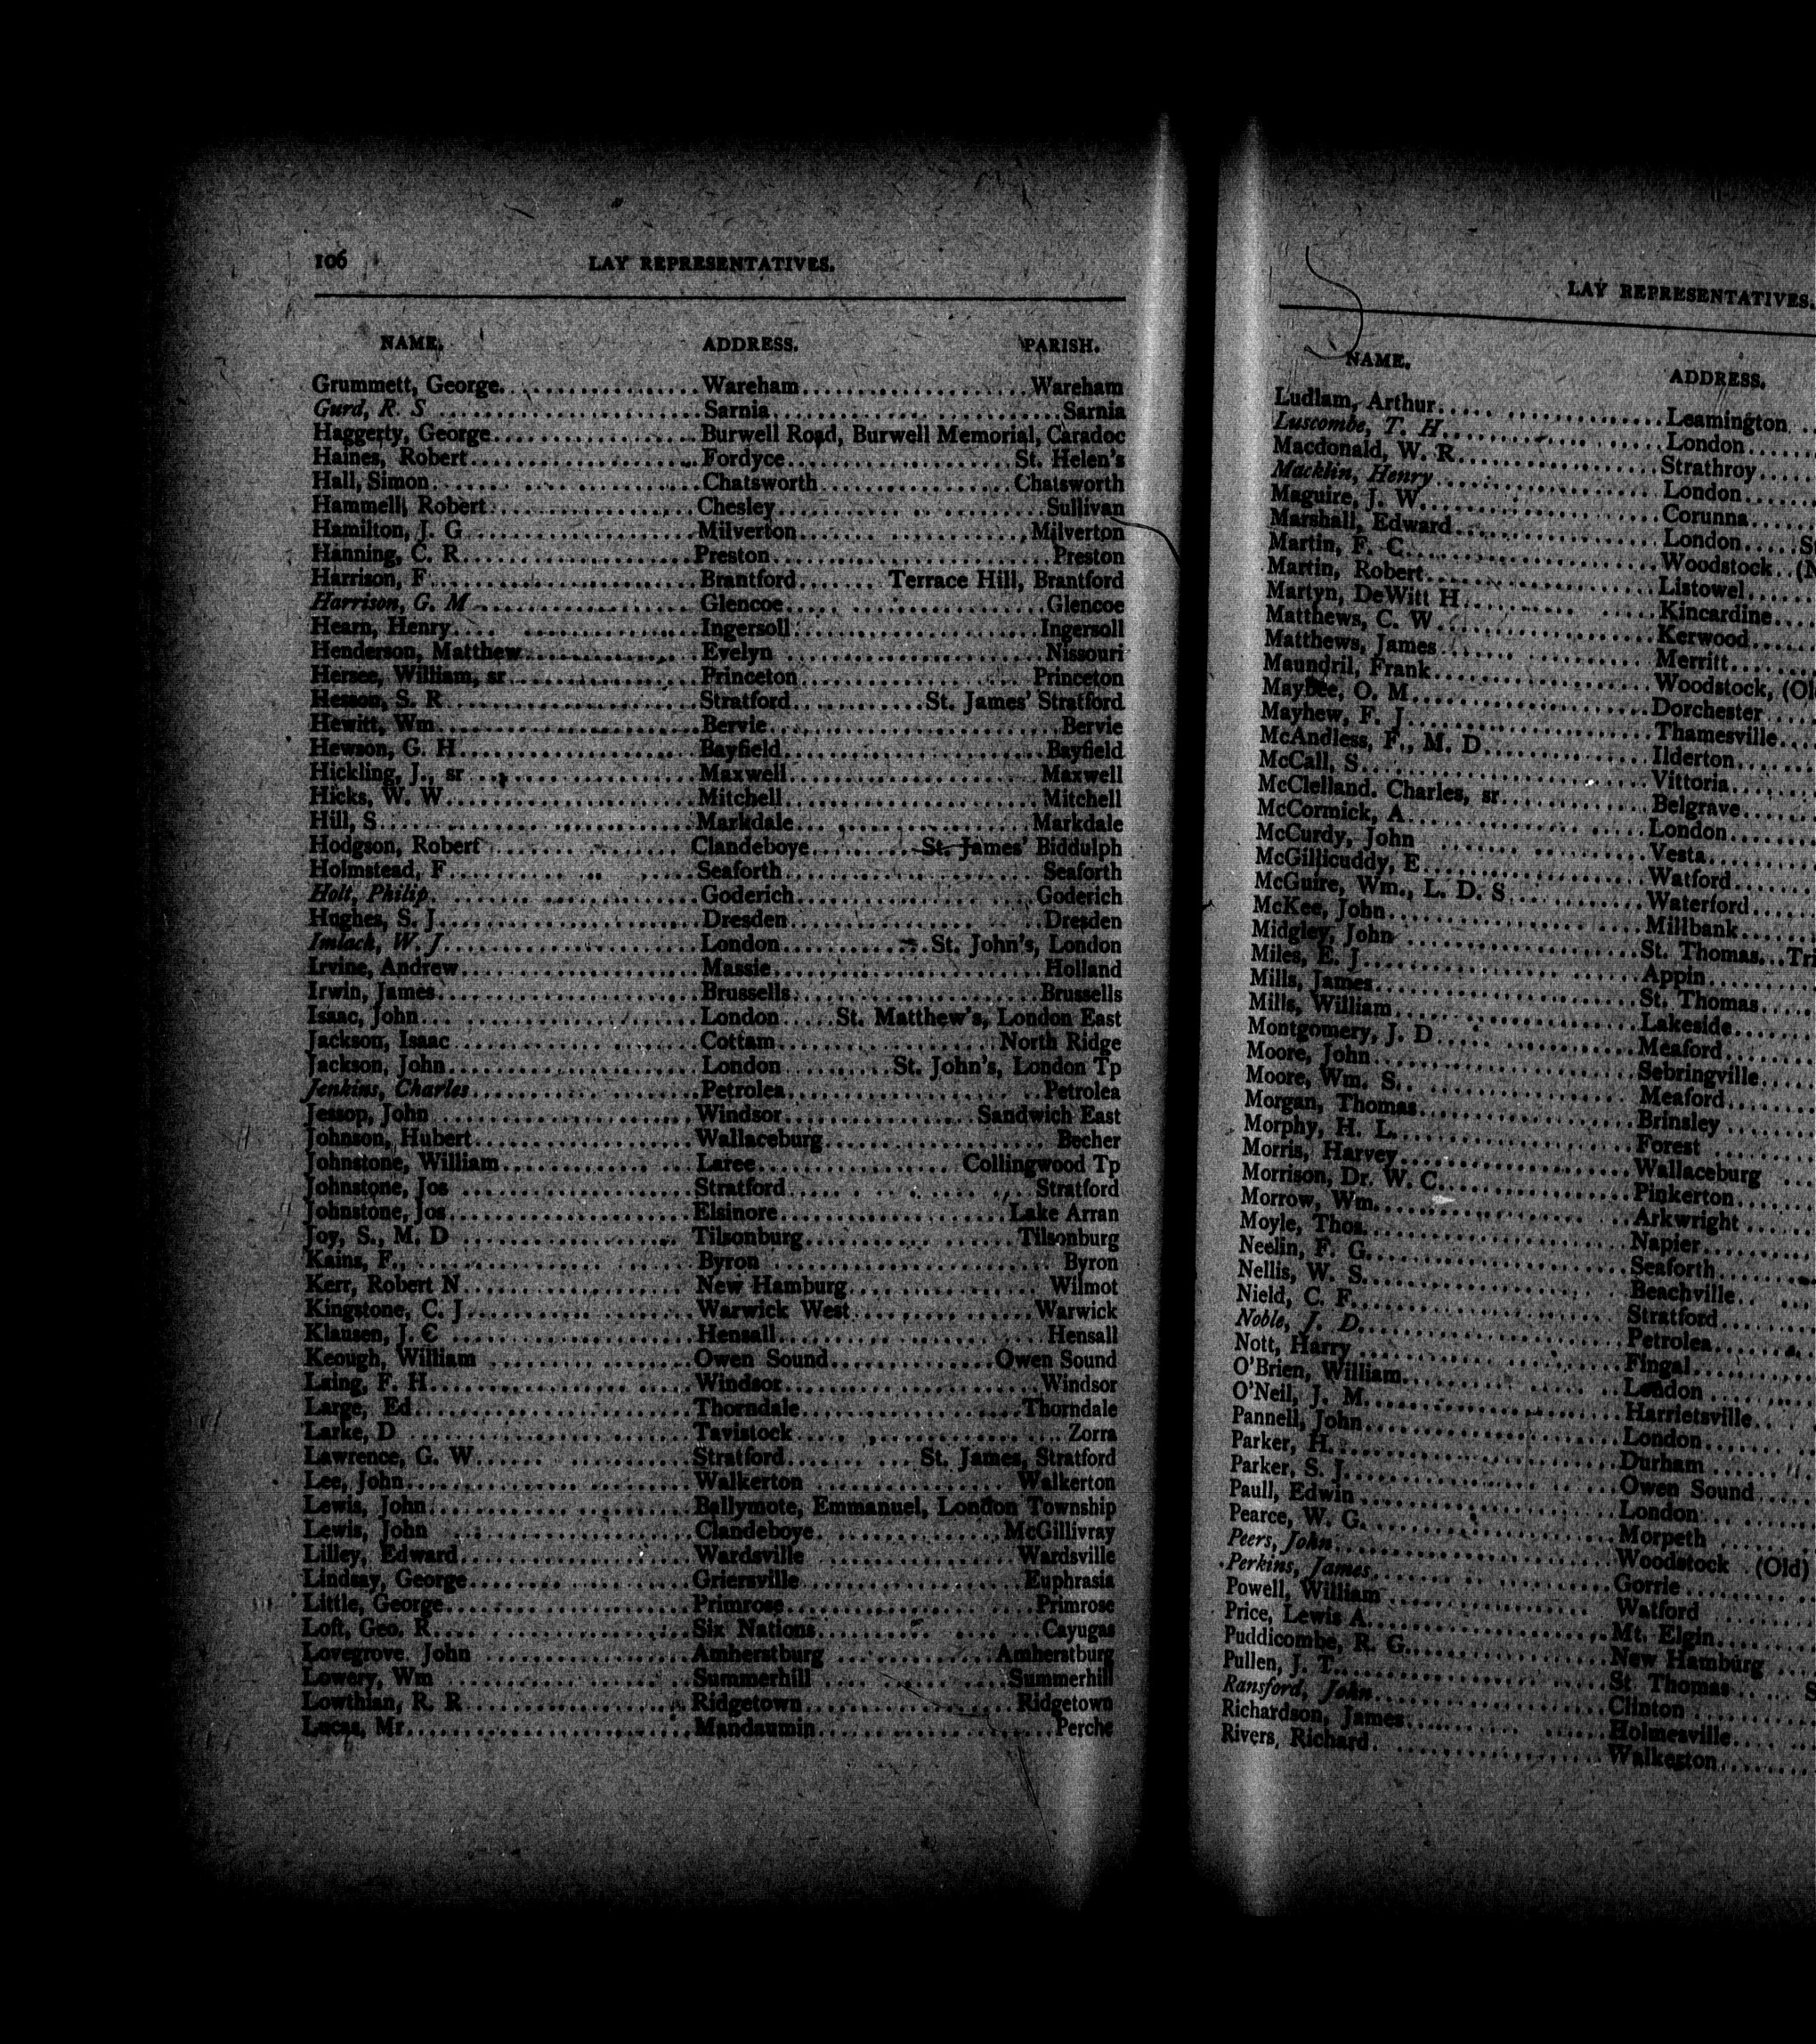 106 LAY REPRESENTATIVES.
NAME. ADDRESS. PARISH.
Grummett, George Wareham Wareham
Gurd, R. S Sarnia Sarnia
Haggerty, George Burwell Road, Burwell Memorial, Caradoc
Haines, Robert Fordyce St. Helen's
Hall, Simon Chatsworth Chatsworth
Hammell, Robert Chesley Sullivan
Hamilton, J. G Milverton Milverton
Hanning, C. R Preston Preston
Harrison, F Brantford Terrace Hill, Brantford
Harrison, G. M Glencoe Glencoe
Hearn, Henry Ingersoll Ingersoll
Henderson, Matthew Evelyn Nissouri
Hersee, William, sr Princeton Princeton
Hesson, S. R Stratford St. James' Stratford
Hewitt, Wm Bervie Bervie
Hewson, G. H Bayfield Bayfield
Hickling, J., sr Maxwell Maxwell
Hicks, W. W Mitchell Mitchell
Hill, S Markdale Markdale
Hodgson, Robert Clandeboye St. James' Biddulph
Holmstead, F Seaforth Seaforth
Holt, Philip Goderich Goderich
Hughes, S. J Dresden Dresden
Imlach, W. J London St. John's, London
Irvine, Andrew Massie Holland
Irwin, James Brussells Brussells
Isaac, John London St. Matthew's, London East
Jackson, Isaac Cottam North Ridge
Jackson, John London St. John's, London Tp
Jenkins, Charles Petrolea Petrolea
Jessop, John Windsor Sandwich East
Johnson, Hubert Wallaceburg Becher
Johnstone, William Laree Collingwood Tp
Johnstone, Jos Stratford Stratford
Johnstone, Jos Elsinore Lake Arran
Joy, S., M. D Tilsonburg Tilsonburg
Kains, F., Byron Byron
Kerr, Robert N New Hamburg Wilmot
Kingstone, C. J Warwick West Warwick
Klausen, J. C Hensall Hensall
Keough, William Owen Sound Owen Sound
Laing, F. H Windsor Windsor
Large, Ed Thorndale Thorndale
Larke, D Tavistock Zorra
Lawrence, G. W Stratford St. James, Stratford
Lee, John Walkerton Walkerton
Lewis, John Ballymote, Emmanuel, London Township
Lewis, John Clandeboye McGillivray
Lilley, Edward Wardsville Wardsville
Lindsay, George Griersville Euphrasia
Little, George Primrose Primrose
Loft, Geo. R Six Nations Cayugas
Lovegrove. John Amherstburg Amherstburg
Lowery, Wm Summerhill Summerhill
Lowthian, R. R Ridgetown Ridgetown
Lucas, Mr Mandaumin Perche
LAY REPRESENTATIVES.
NAME. ADDRESS.
Ludlam, Arthur Leamington
Luscombe, T. H London
Macdonald, W. R Strathroy
Macklin, Henry London
Maguire, J. W Corunna
Marshall, Edward London
Martin, F. C Woodstock
Martin, Robert Listowel
Martyn, DeWitt H Kincardine
Matthews, C. W Kerwood
Matthews, James Merritt
Maundril, Frank Woodstock,
Maybee, O. M Dorchester
Mayhew, F. J Thamesville
McAndless, F., M. D Ilderton
McCall, S Vittoria
McClelland. Charles, sr Belgrave
McCormick, A London
McCurdy, John Vesta
McGillicuddy, E Watford
McGuire, Wm., L. D. S Waterford
McKee, John Millbank
Midgley, John St. Thomas
Miles, E. J Appin
Mills, James St. Thomas
Mills, William Lakeside
Montgomery, J. D Meaford
Moore, John Sebringville
Moore, Wm. S. Meaford
Morgan, Thomas Brinsley
Morphy, H. L Forest
Morris, Harvey Wallaceburg
Morrison, Dr. W. C. Pinkerton
Morrow, Wm. Arkwright
Moyle, Thos. Napier
Neelin, F. G. Seaforth
Nellis, W. S. Beachville
Nield, C. F. Stratford
Noble, J. D. Petrolea
Nott, Harry Fingal
O'Brien, William London
O'Neil, J. M. Harrietsville
Pannell, John London
Parker, H. Durham
Parker, S. J. Owen Sound
Paull, Edwin London
Pearce, W. G. Morpeth
Peers, John Woodstock (Old)
Perkins, James Gorrie
Powell, William Watford
Price, Lewis A. Mt. Elgin
Puddicombe, R. G. New Hamburg
Pullen, J. T. St Thomas
Ransford, John Clinton
Richardson, James Holmesville
Rivers, Richard Walkerton